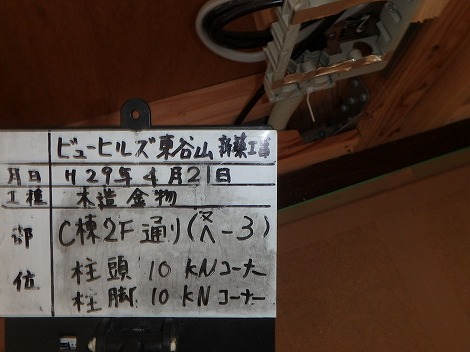 ビューヒルズ東谷山 新築工事
月日 H29年4月21日
工種 木造金物
部位 C棟2F通り(又へ-3)
柱頭 10 kNコーナー
柱脚 10 kNコーナー